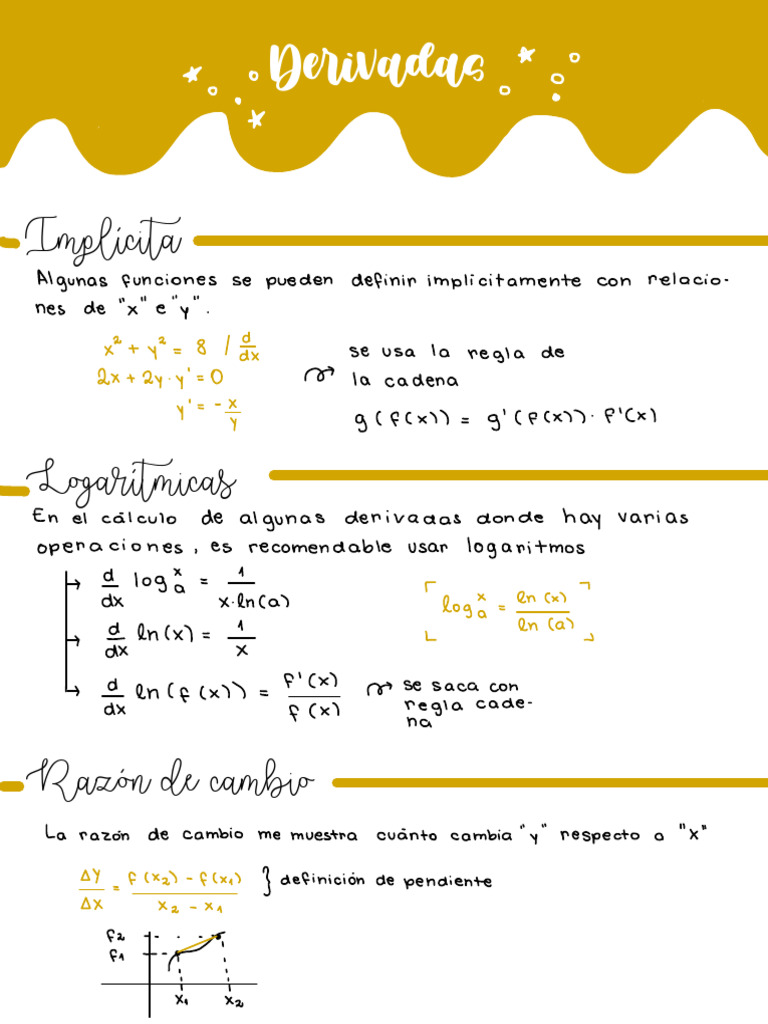 Derivadas
Implícita
Algunas funciones se pueden definir implícitamente con relacio-
nes de "x" e "y".
x² + y² = 8 / d/dx
2x + 2y · y' = 0
y' = - x/y
se usa la regla de
la cadena
g(f(x)) = g'(f(x)) · f'(x)
Logarítmicas
En el cálculo de algunas derivadas donde hay varias
operaciones, es recomendable usar logaritmos
d/dx log_a^x = 1/(x·ln(a))
log_a^x = ln(x)/ln(a)
d/dx ln(x) = 1/x
d/dx ln(f(x)) = f'(x)/f(x)
se saca con
regla cade-
na
Razón de cambio
La razón de cambio me muestra cuánto cambia "y" respecto a "x"
Δy/Δx = (f(x₂) - f(x₁))/(x₂ - x₁) } definición de pendiente
f2
f1
x₁ x₂